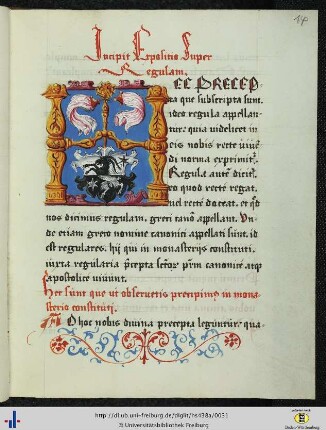 Incipit Expositio Super
Regulam.
HEC PRECEP
ta que subscripta sunt.
ideo regula appellan-
tur: quia videlicet in
eis nobis recte viuē
di norma exprimit.
Regula autē dicit
eo quod recte regat.
uel recte doceat. et qd
nos dicimus regulam. greci canō appellant. Vn-
de etiam greco nomine canonici appellati sunt. id
est regulares. hij qui in monasterijs constituti.
iuxta regularia p̄cepta sctoꝝ pr̄m canonice atqꝫ
apostolice viuunt.
Hec sunt que ut obseruetis precipimꝰ in mona-
sterio constituti.
Ad hoc nobis diuina precepta leguntur. qua-
http://dl.ub.uni-freiburg.de/diglit/hs438a/0031
© Universitätsbibliothek Freiburg